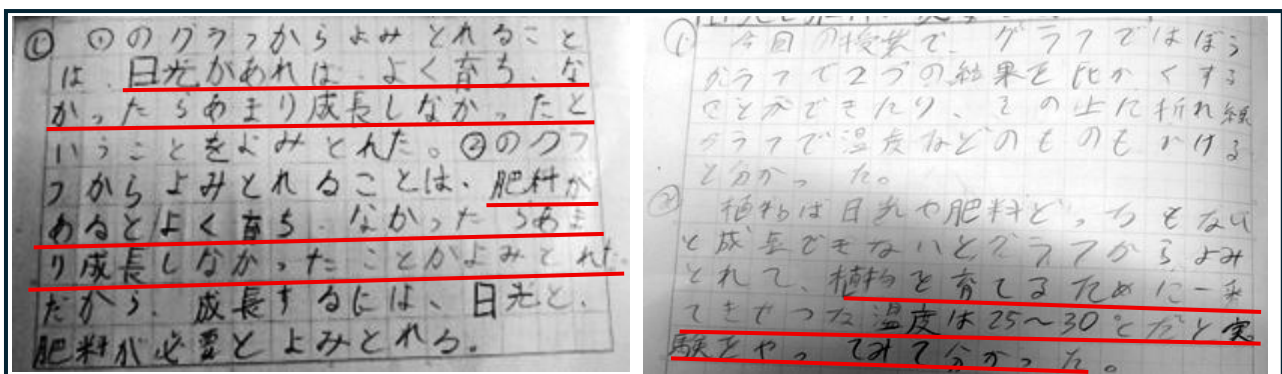 ① ①のグラフからよみとれること
は、日光があれば、よく育ち、な
かったらあまり成長しなかったと
いうことをよみとれた。②のグラ
フからよみとれることは、肥料が
あるとよく育ち、なかったらあま
り成長しなかったことがよみとれた。
だから、成長するには、日光と、
肥料が必要とよみとれる。
① 今回の授業で、グラフではぼう
グラフで2つの結果を比かくする
ことができたり、その上に折れ線
グラフで温度などのものもかける
と分かった。
② 植物は日光や肥料どっちもない
と成長できないとグラフからよみ
とれて、植物を育てるために一番
てきせつな温度は25〜30℃だと実
験をやってみて分かった。